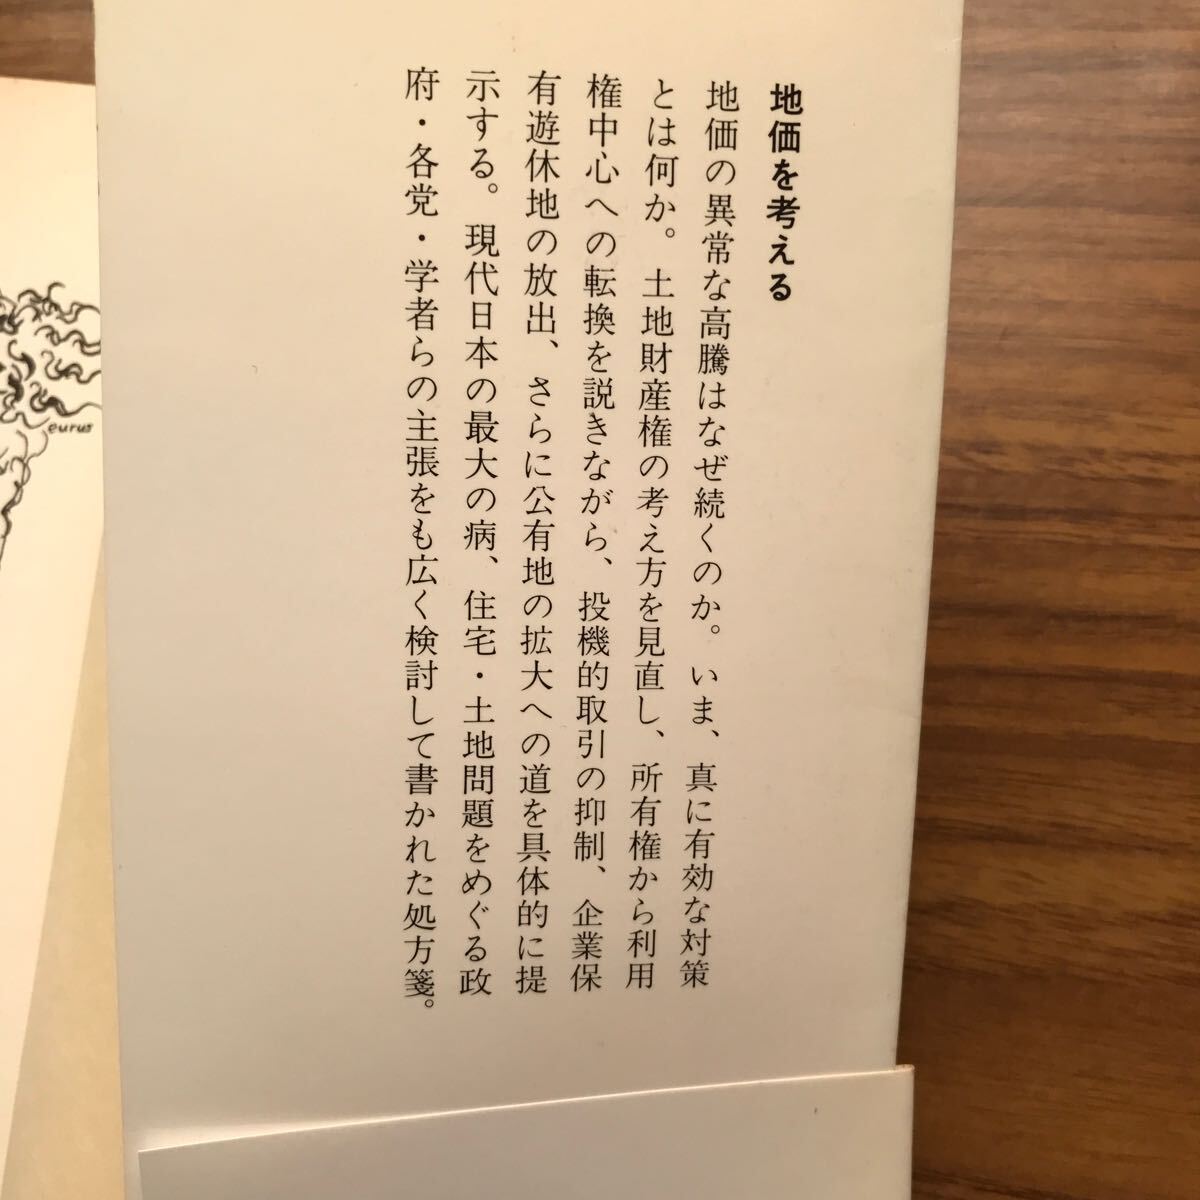 地価を考える
地価の異常な高騰はなぜ続くのか。いま、真に有効な対策
とは何か。土地財産権の考え方を見直し、所有権から利用
権中心への転換を説きながら、投機的取引の抑制、企業保
有遊休地の放出、さらに公有地の拡大への道を具体的に提
示する。現代日本の最大の病、住宅・土地問題をめぐる政
府・各党・学者らの主張をも広く検討して書かれた処方箋。
eurus